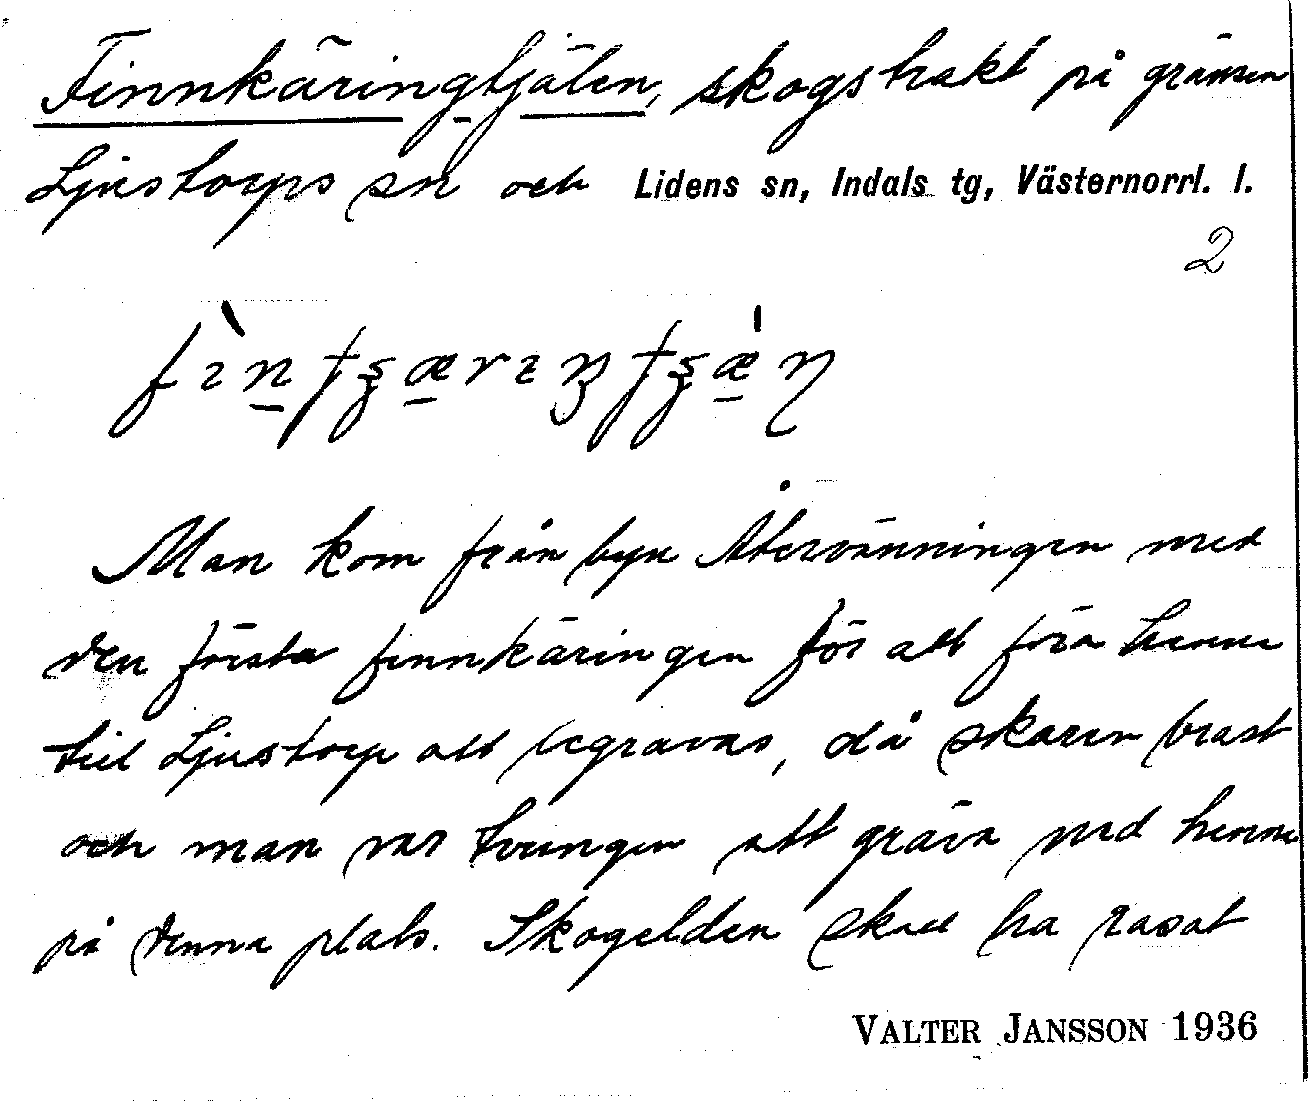 Finnkäringtjälen, skogstrakt på gränsen
Ljustorps sn och Lidens sn, Indals tg, Västernorrl. l.
2
Man kom från byn Återvänningen med
den första finnkäringen för att föra henne
till Ljustorp att begravas, då skaren brast
och man var tvungen att gräva ned henne
på denna plats. Skogelden skall ha rasat
VALTER JANSSON 1936